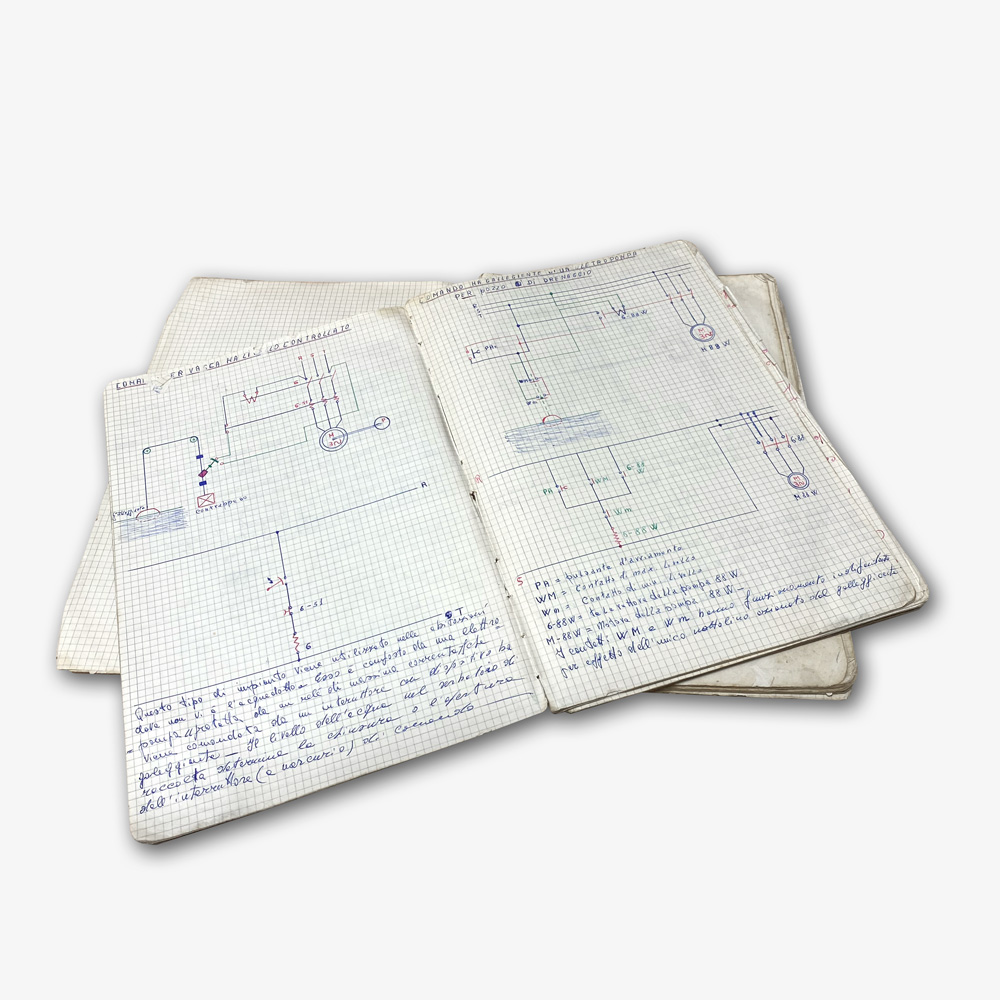 COMA ER VASCA HA LI LO CONTROLLATO
R S T
W
6-S1
M
3∿
P
contrappeso
R
6-S1
6
T
Questo tipo di impianto viene utilizzato nelle abitazioni
dove non vi è l'acquedotto. Esso è composto da una elettro
pompa protetta da un relè di massima corrente
viene comandata da un interruttore con dispositivo ba
galeggiante. Il livello dell'acqua nel serbatoio di
raccolta determina la chiusura o l'apertura
dell'interruttore (a mercurio) di comando
COMANDO UNA ELETROPOMPA
PER POZZO DI DRENAGGIO
W
6-88W
PA
M
3∿
M 88 W
WM
Wm
PA
WM
6-88
W
Wm
6-88 W
6-88
M
3∿
M 88 W
5
PA = pulsante d'avviamento
WM = Contatto di max. livello
Wm = Contatto di min. livello
6-88W = teleruttore della pompa 88 W
M-88W = Motore della pompa 88 W -
I contatti WM e Wm hanno funzionamento
per effetto dell'unico nottolino azionato dal galleggiante